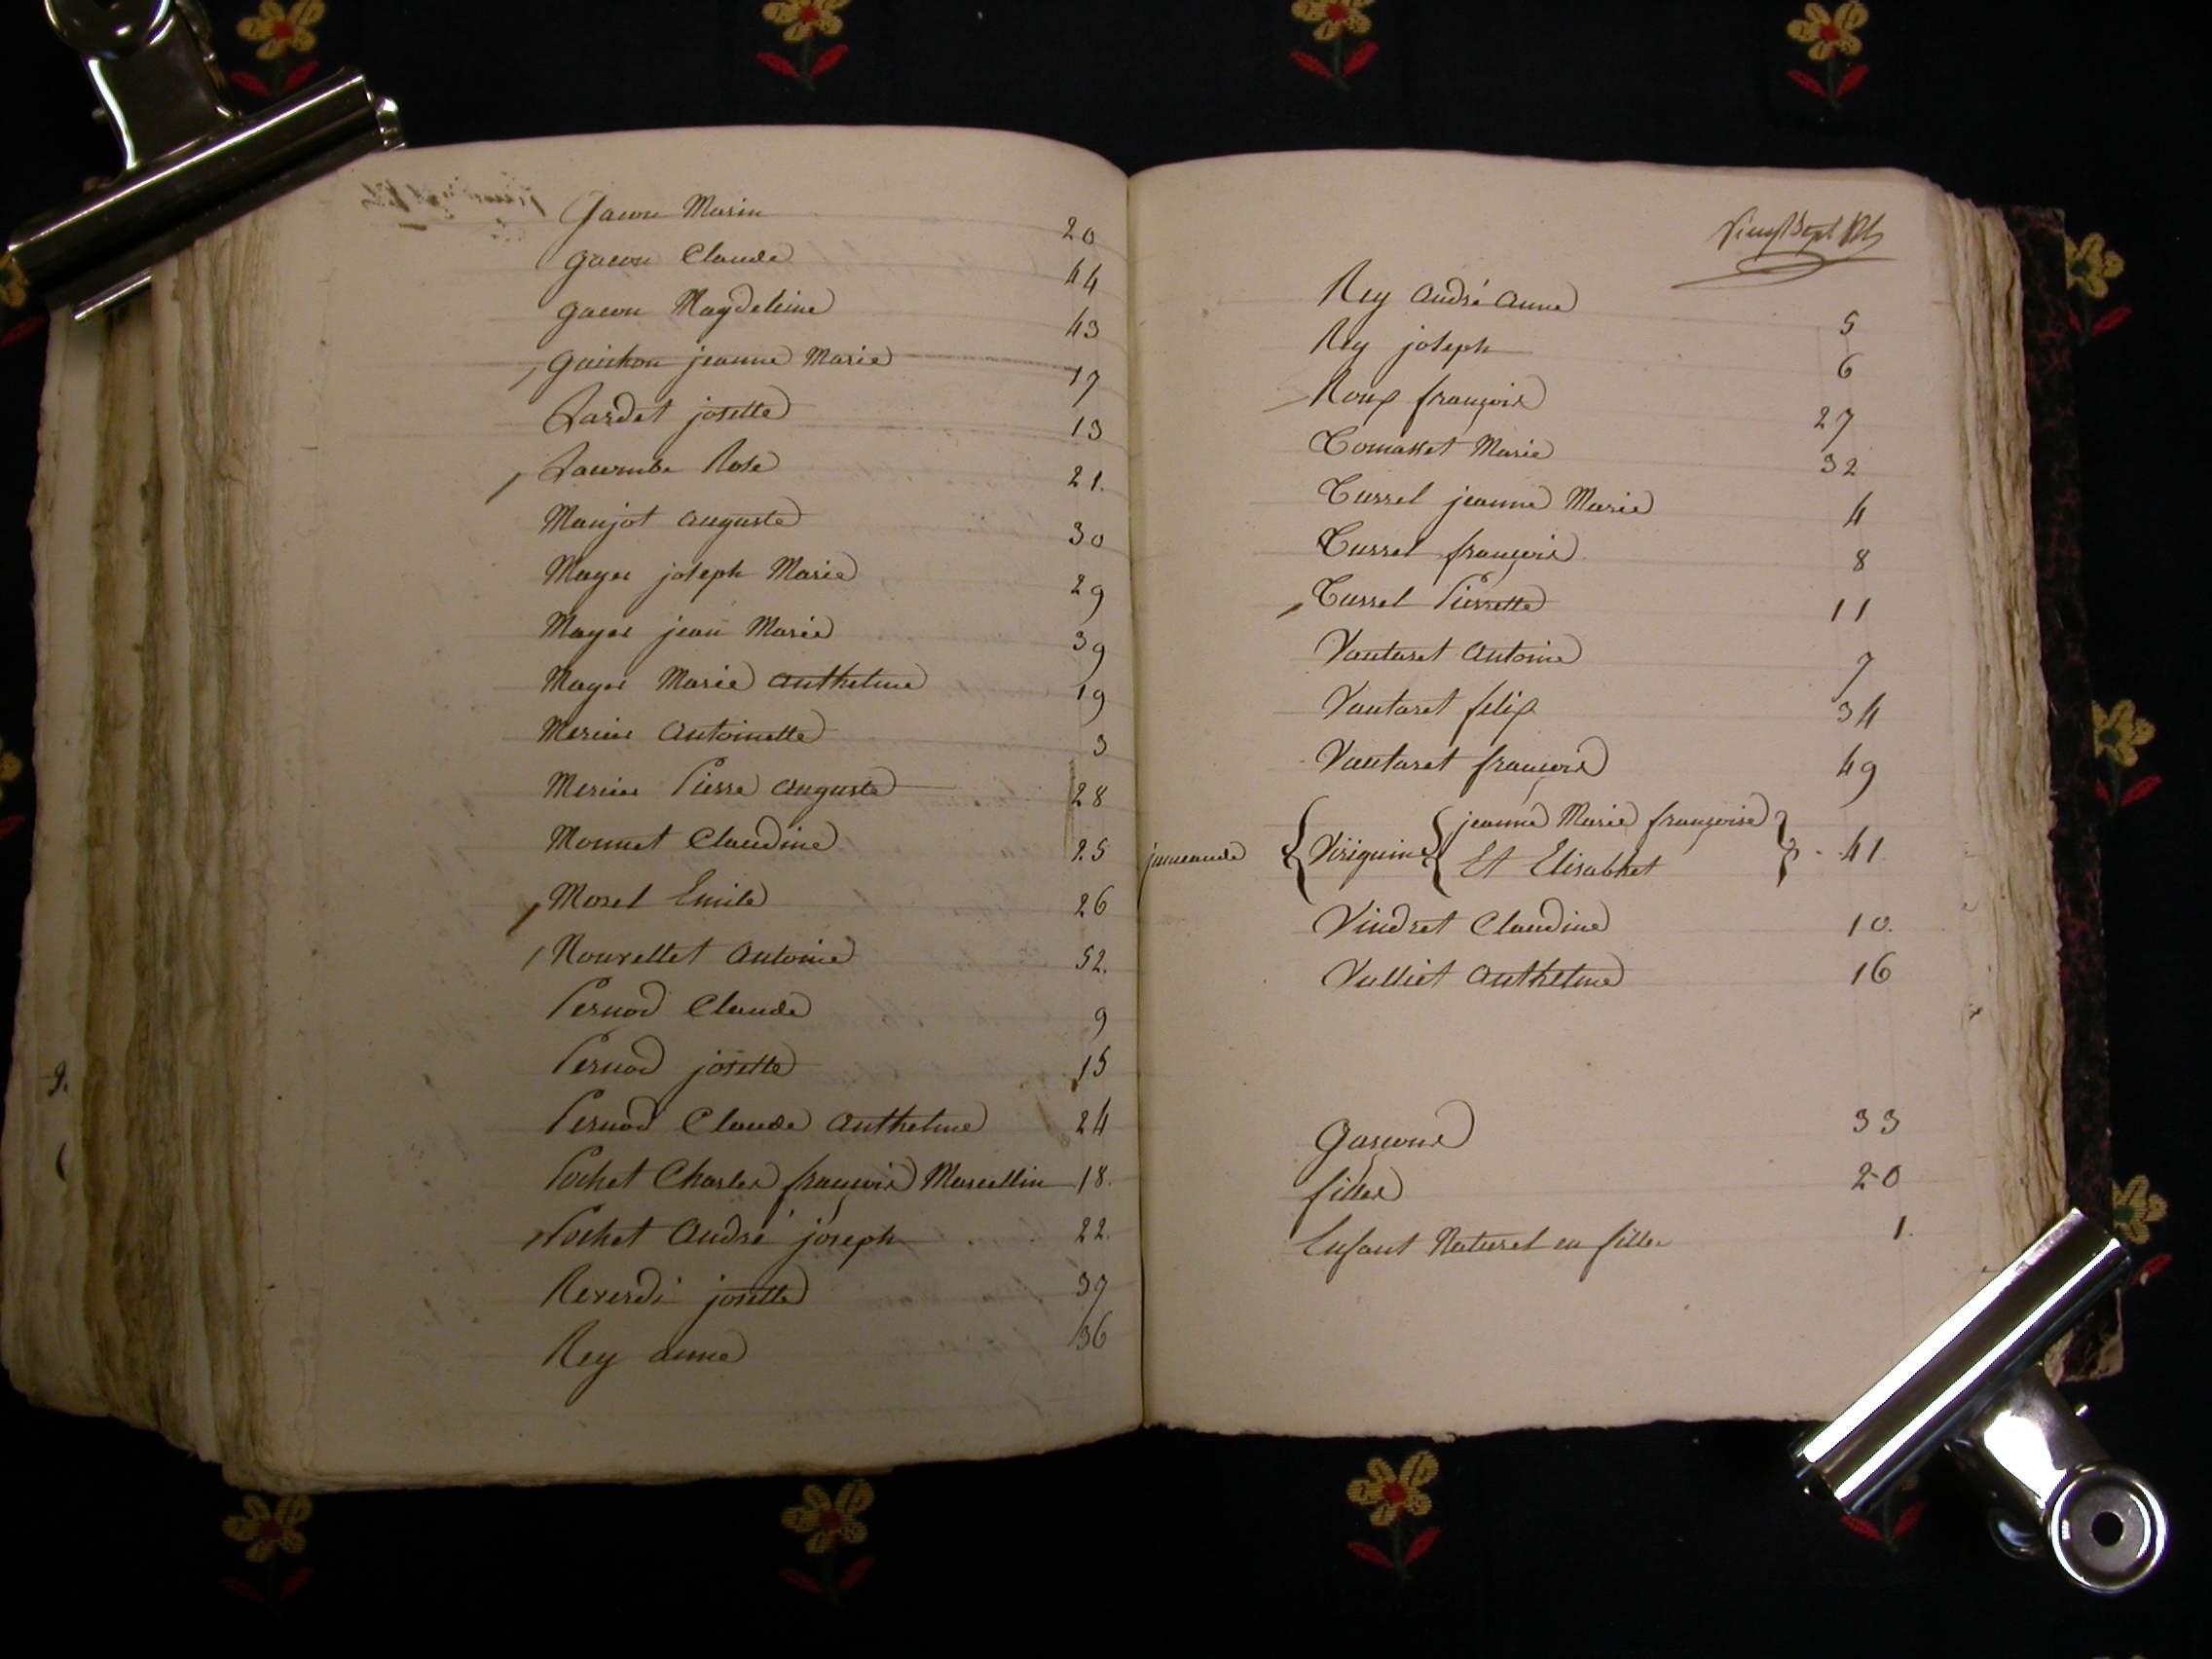 Gacon Marin 20
gacon Claude 44
gacon Magdeleine 43
guichon jeanne Marie 17
Lardet josette 13
Lacombe Rose 21.
Maujot auguste 30
Mayer joseph Marie 29
Mayer jean Marie 39
Mayer Marie anthelme 19
Mercier antoinette 3
Mercier Pierre auguste 28
Monnet Claudine 25
Morel Emile 26
Nourellet antoine 52.
Pernod Claude 9
Pernod josette 15
Pernod Claude anthelme 24
Pochet Charles françois Marcellin 18.
Pochet andré joseph 22.
Reverdi josette 37
Rey anne 36
Vingt Sept
Rey andré anne 5
Rey joseph 6
Roux françois 27
Tomasset Marie 32
Tussel jeanne Marie 4
Tussel françois 8
Tussel Pierrette 11
Vautaret antoine 7
Vautaret felix 34
Vautaret françois 49
jumeaude Viriguine jeanne Marie françoise 41
Et Elisabhet
Vindret Claudine 10.
Vulliet anthelme 16
Garçons 33
filles 20
Enfant Naturel en filles 1.